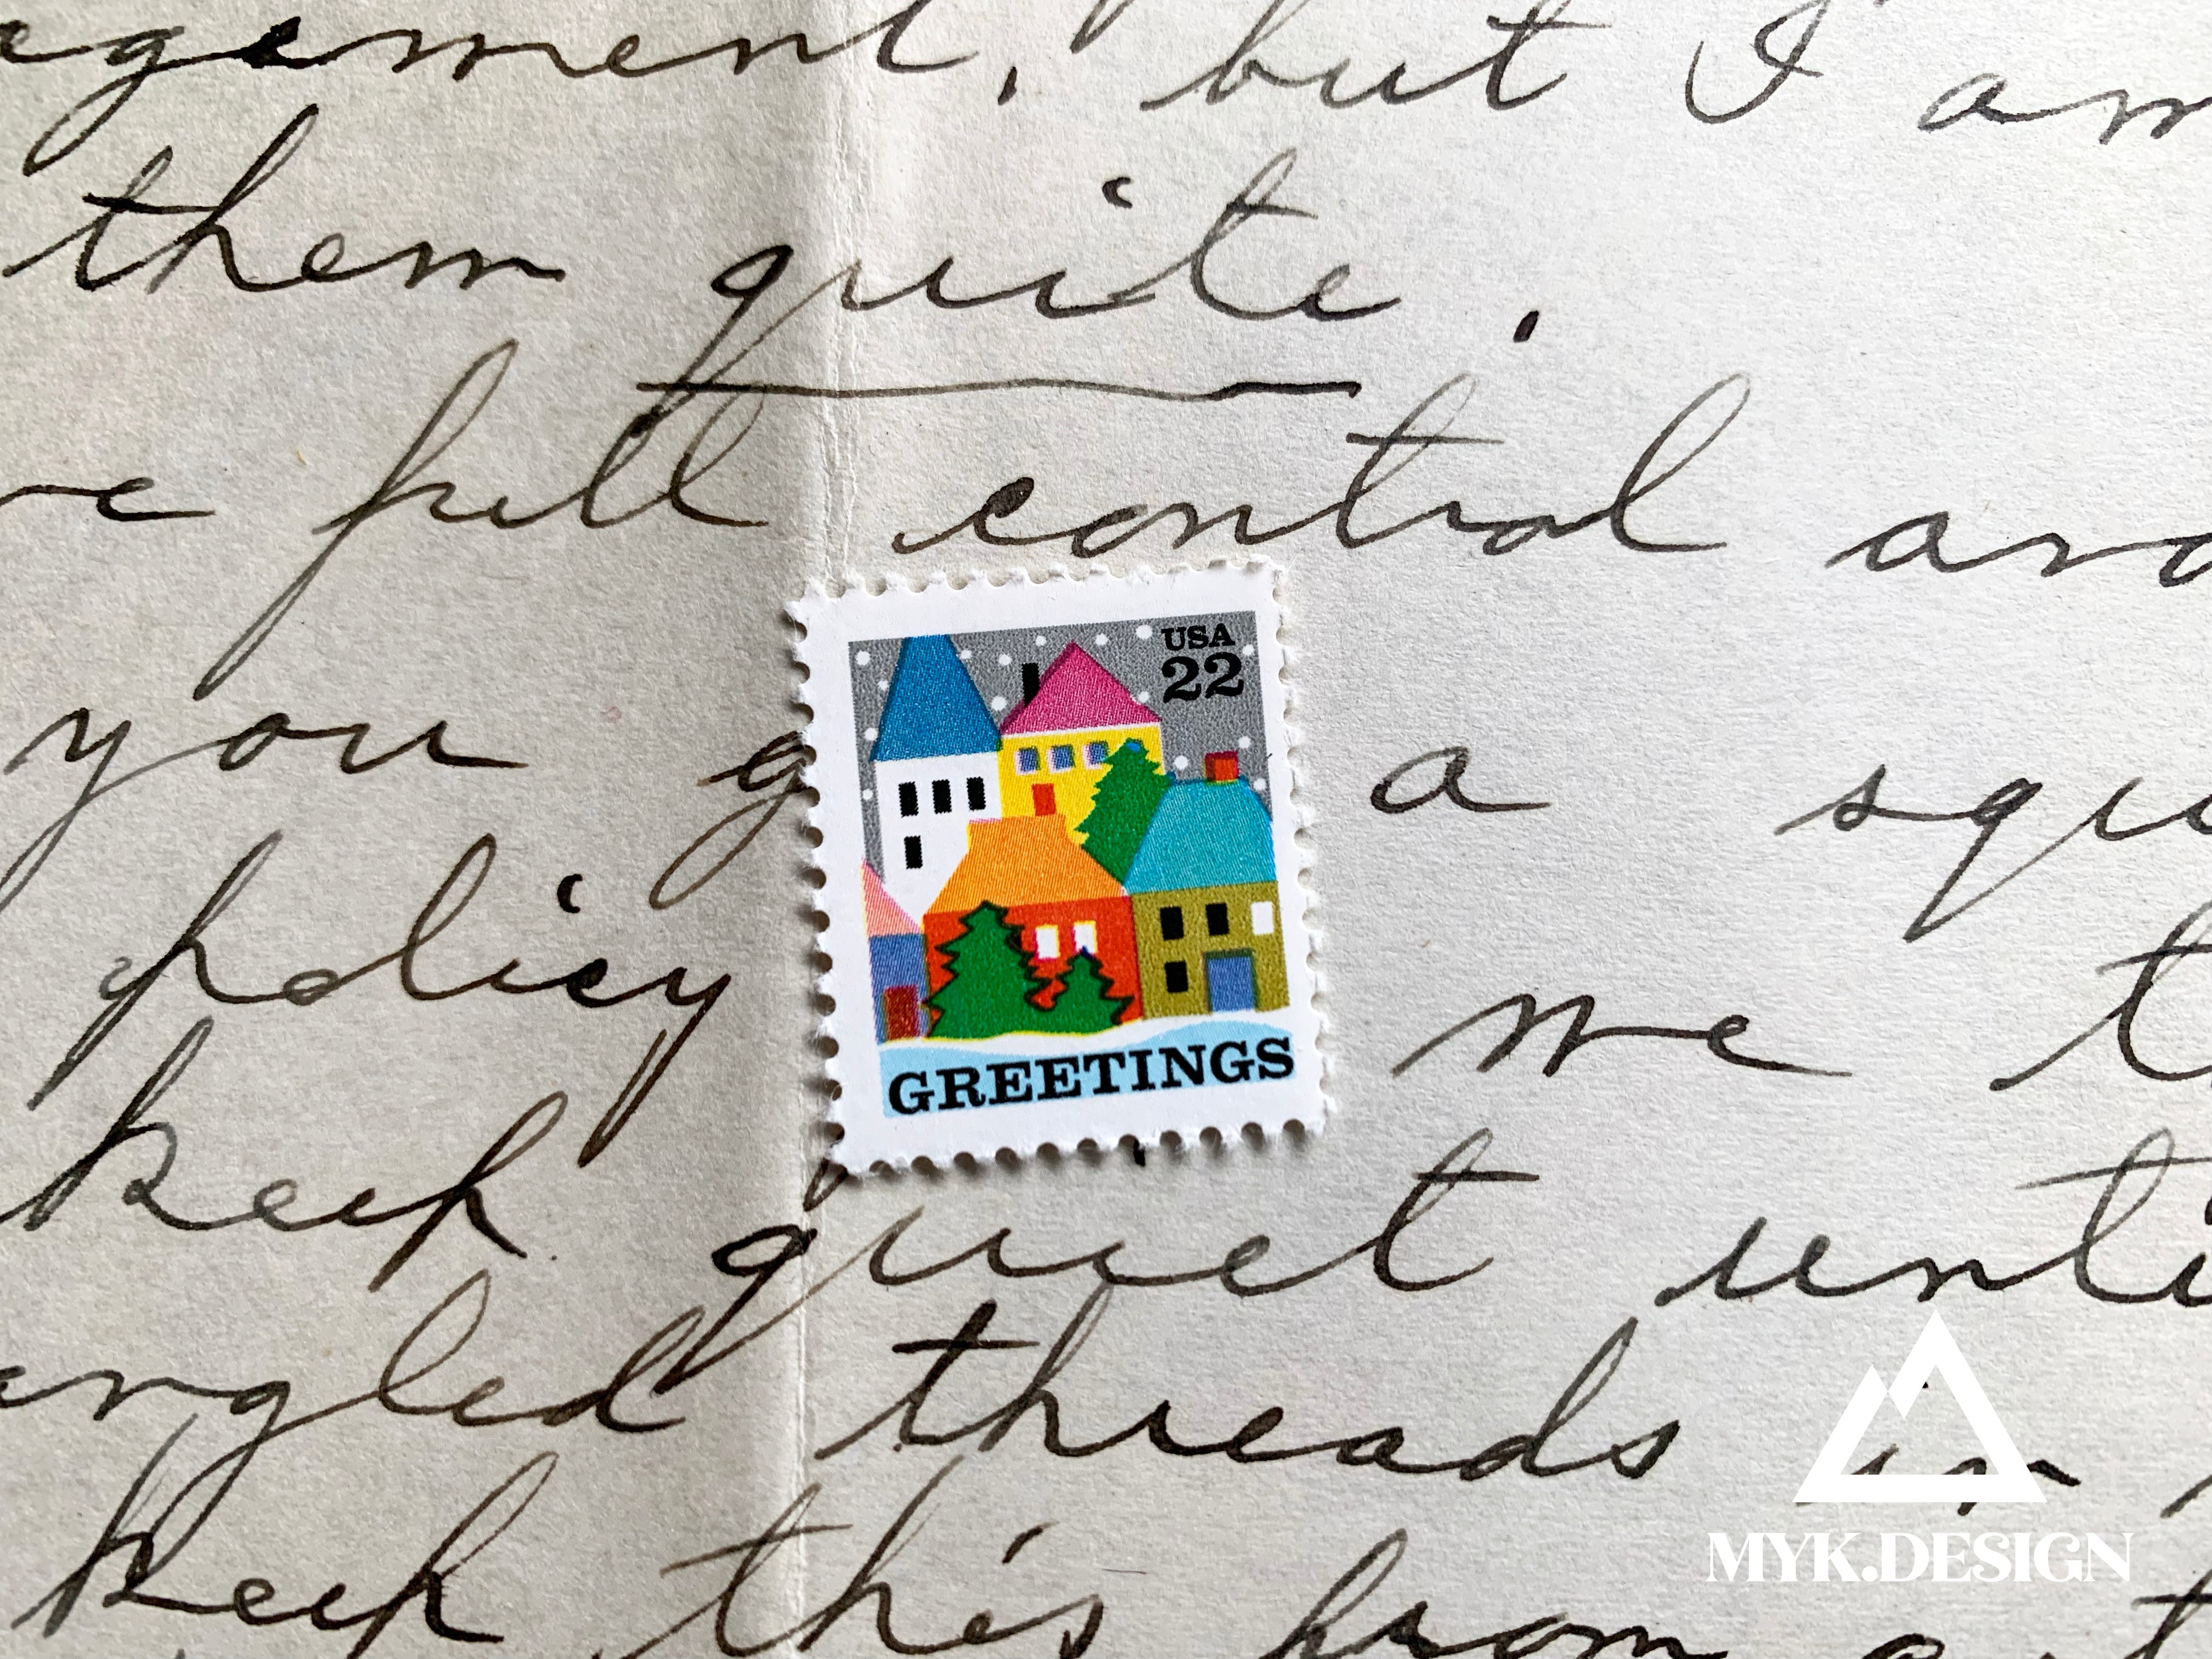 agement, but I am
them quite.
e full control and
you g a squ
policy me t
keep quiet unti
angled threads in
keep this from
USA
22
GREETINGS
MYK.DESIGN